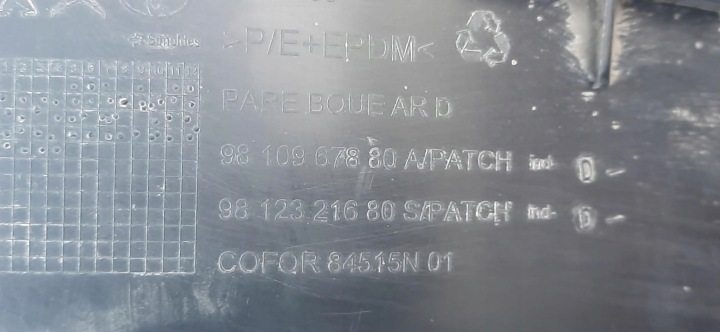 >P/E+EPDM<
PARE BOUE AR D
98 109 678 80 A/PATCH ind- D -
98 123 216 80 S/PATCH ind- D -
COFOR 84515N 01